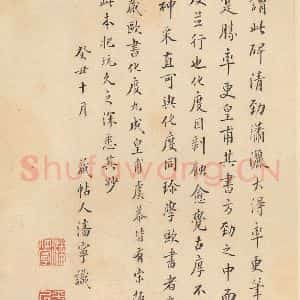 謂此碑清勁瀟灑大得率更筆
是勝率更皇甫其書方勁之中而
及豈行也化度因剝蝕愈覺古厚不
神采直可與化度同珍學歐書者
歐書化度九成皇甫虞恭皆有宋拓
此本把玩久之深悉其妙
癸丑十月
帖人潘寧識
Shufawang.CN